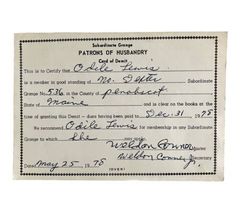 Subordinate Grange
PATRONS OF HUSBANDRY
Card of Demit
This is to Certify that Odile Lewis
is a member in good standing of No. Dexter Subordinate
Grange No. 536, in the County of Penobscot
State of Maine and is clear on the books at the
time of granting this Demit — dues having been paid to Dec. 31 1978
We recommend Odile Lewis for membership in any Subordinate
Grange to which She may apply.
Weldon Conner
Secretary
Dated May 25 1978 Weldon Conner Jr.
(OVER)